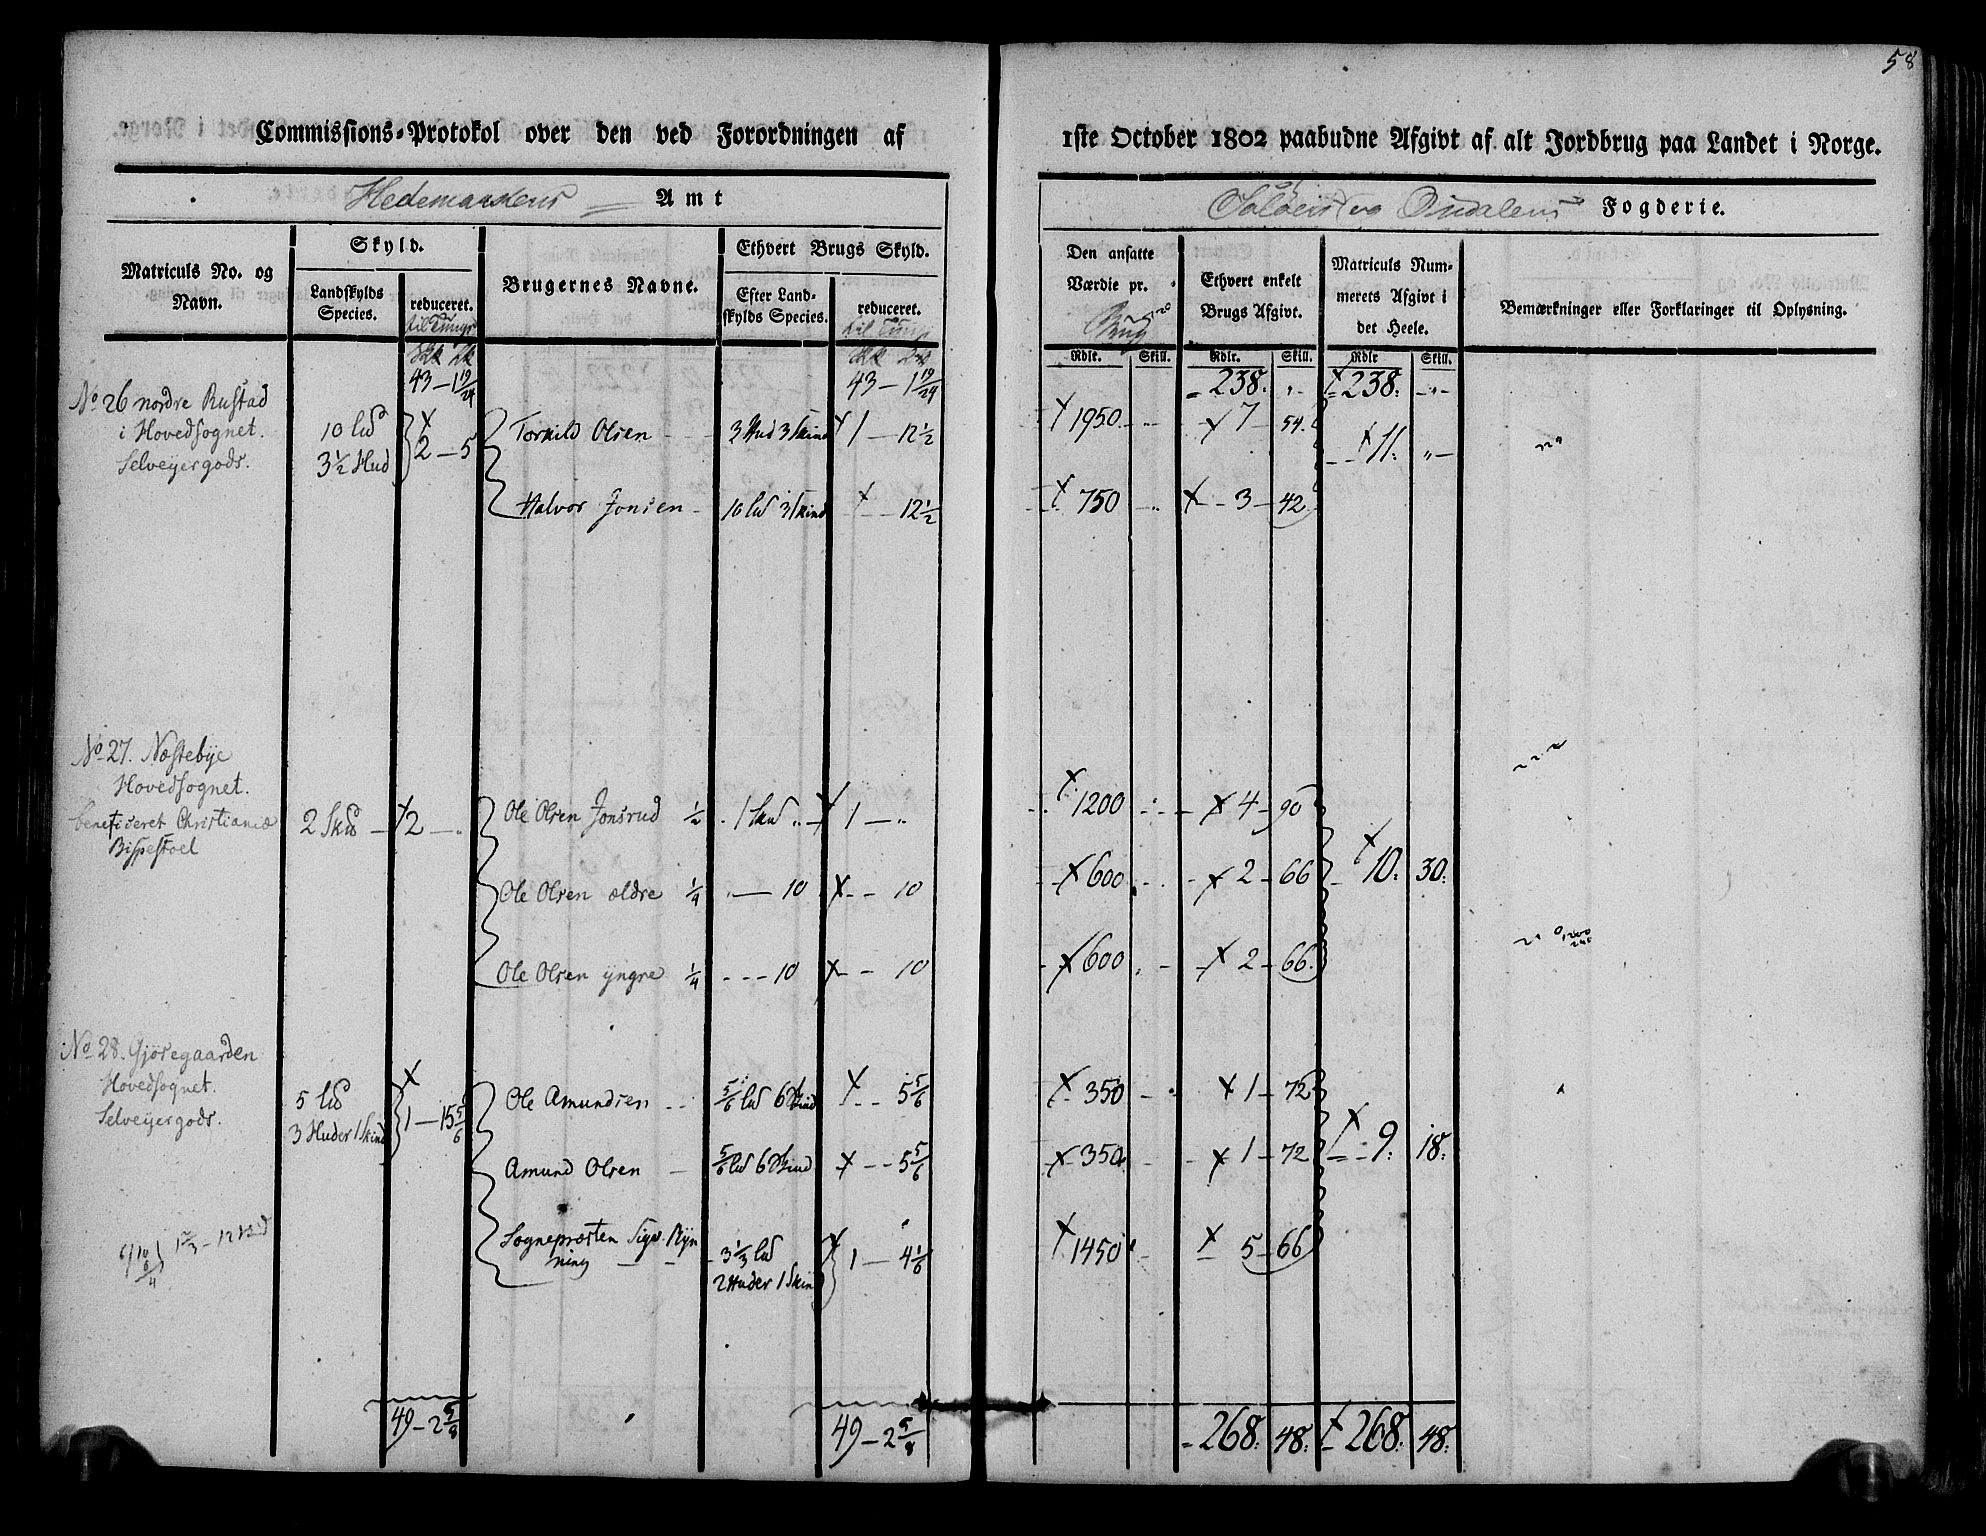 58
Commissions-Protokol over den ved Forordningen af 1ste October 1802 paabudne Afgivt af alt Jordbrug paa Landet i Norge.
Hedemarkens Amt
Soløers og Ousdalens Fogderie.
Matriculs No. og Navn.
Skyld.
Landskylds Species.
reduceret. til Tunge
Brugernes Navne.
Ethvert Brugs Skyld.
Efter Landskylds Species.
reduceret. til Tung
Den ansatte Værdie pr. Brug
Ethvert enkelt Brugs Afgivt.
Matriculs Nummerets Afgivt i det Heele.
Bemærkninger eller Forklaringer til Oplysning.
Rdlr. Skill. Rdlr. Skill. Rdlr Skill.
43 – 1 19/24 43 – 1 19/24 238. „ 238. „
No 26 nordre Rustad
i Hovedsognet.
Selveyergods.
10 lid
3½ Hud
2 – 5
Torkild Olsen – 3 Hud 3 Skind 1 – 12½ 1950 7 – 54. 11. „
Halvor Jonsen – 10 lid 3 Skind 12½ 750 3 – 42
No 27. Næstebye
Hovedsognet.
beneficeret Christianiæ
Bispestoel
2 Skd 2 –
Ole Olsen Jonsrud ½ 1 Skd „ 1 – „ 1200 4 – 90
Ole Olsen ældre ¼ – 10 – 10 600 2 – 66 10. 30.
Ole Olsen yngre ¼ – 10 – 10 600 2 – 66.
No 28. Gjøsegaarden
Hovedsognet.
Selveyergods.
5 lid
3 Huder 1 Skind
1 – 15 5/6
Ole Amundsen 5/6 lid 6 Skind 5 5/6 350 1 – 72
Amund Olsen 5/6 lid 6 Skind 5 5/6 350 1 – 72 9. 18.
Sognepræsten Sigv. Ryn
ning – 3⅓ lid
2 Huder 1 Skin
1 – 4 1/6 1450 5 – 66
49 – 2 5/8 49 – 2 5/8 268. 48. 268. 48.